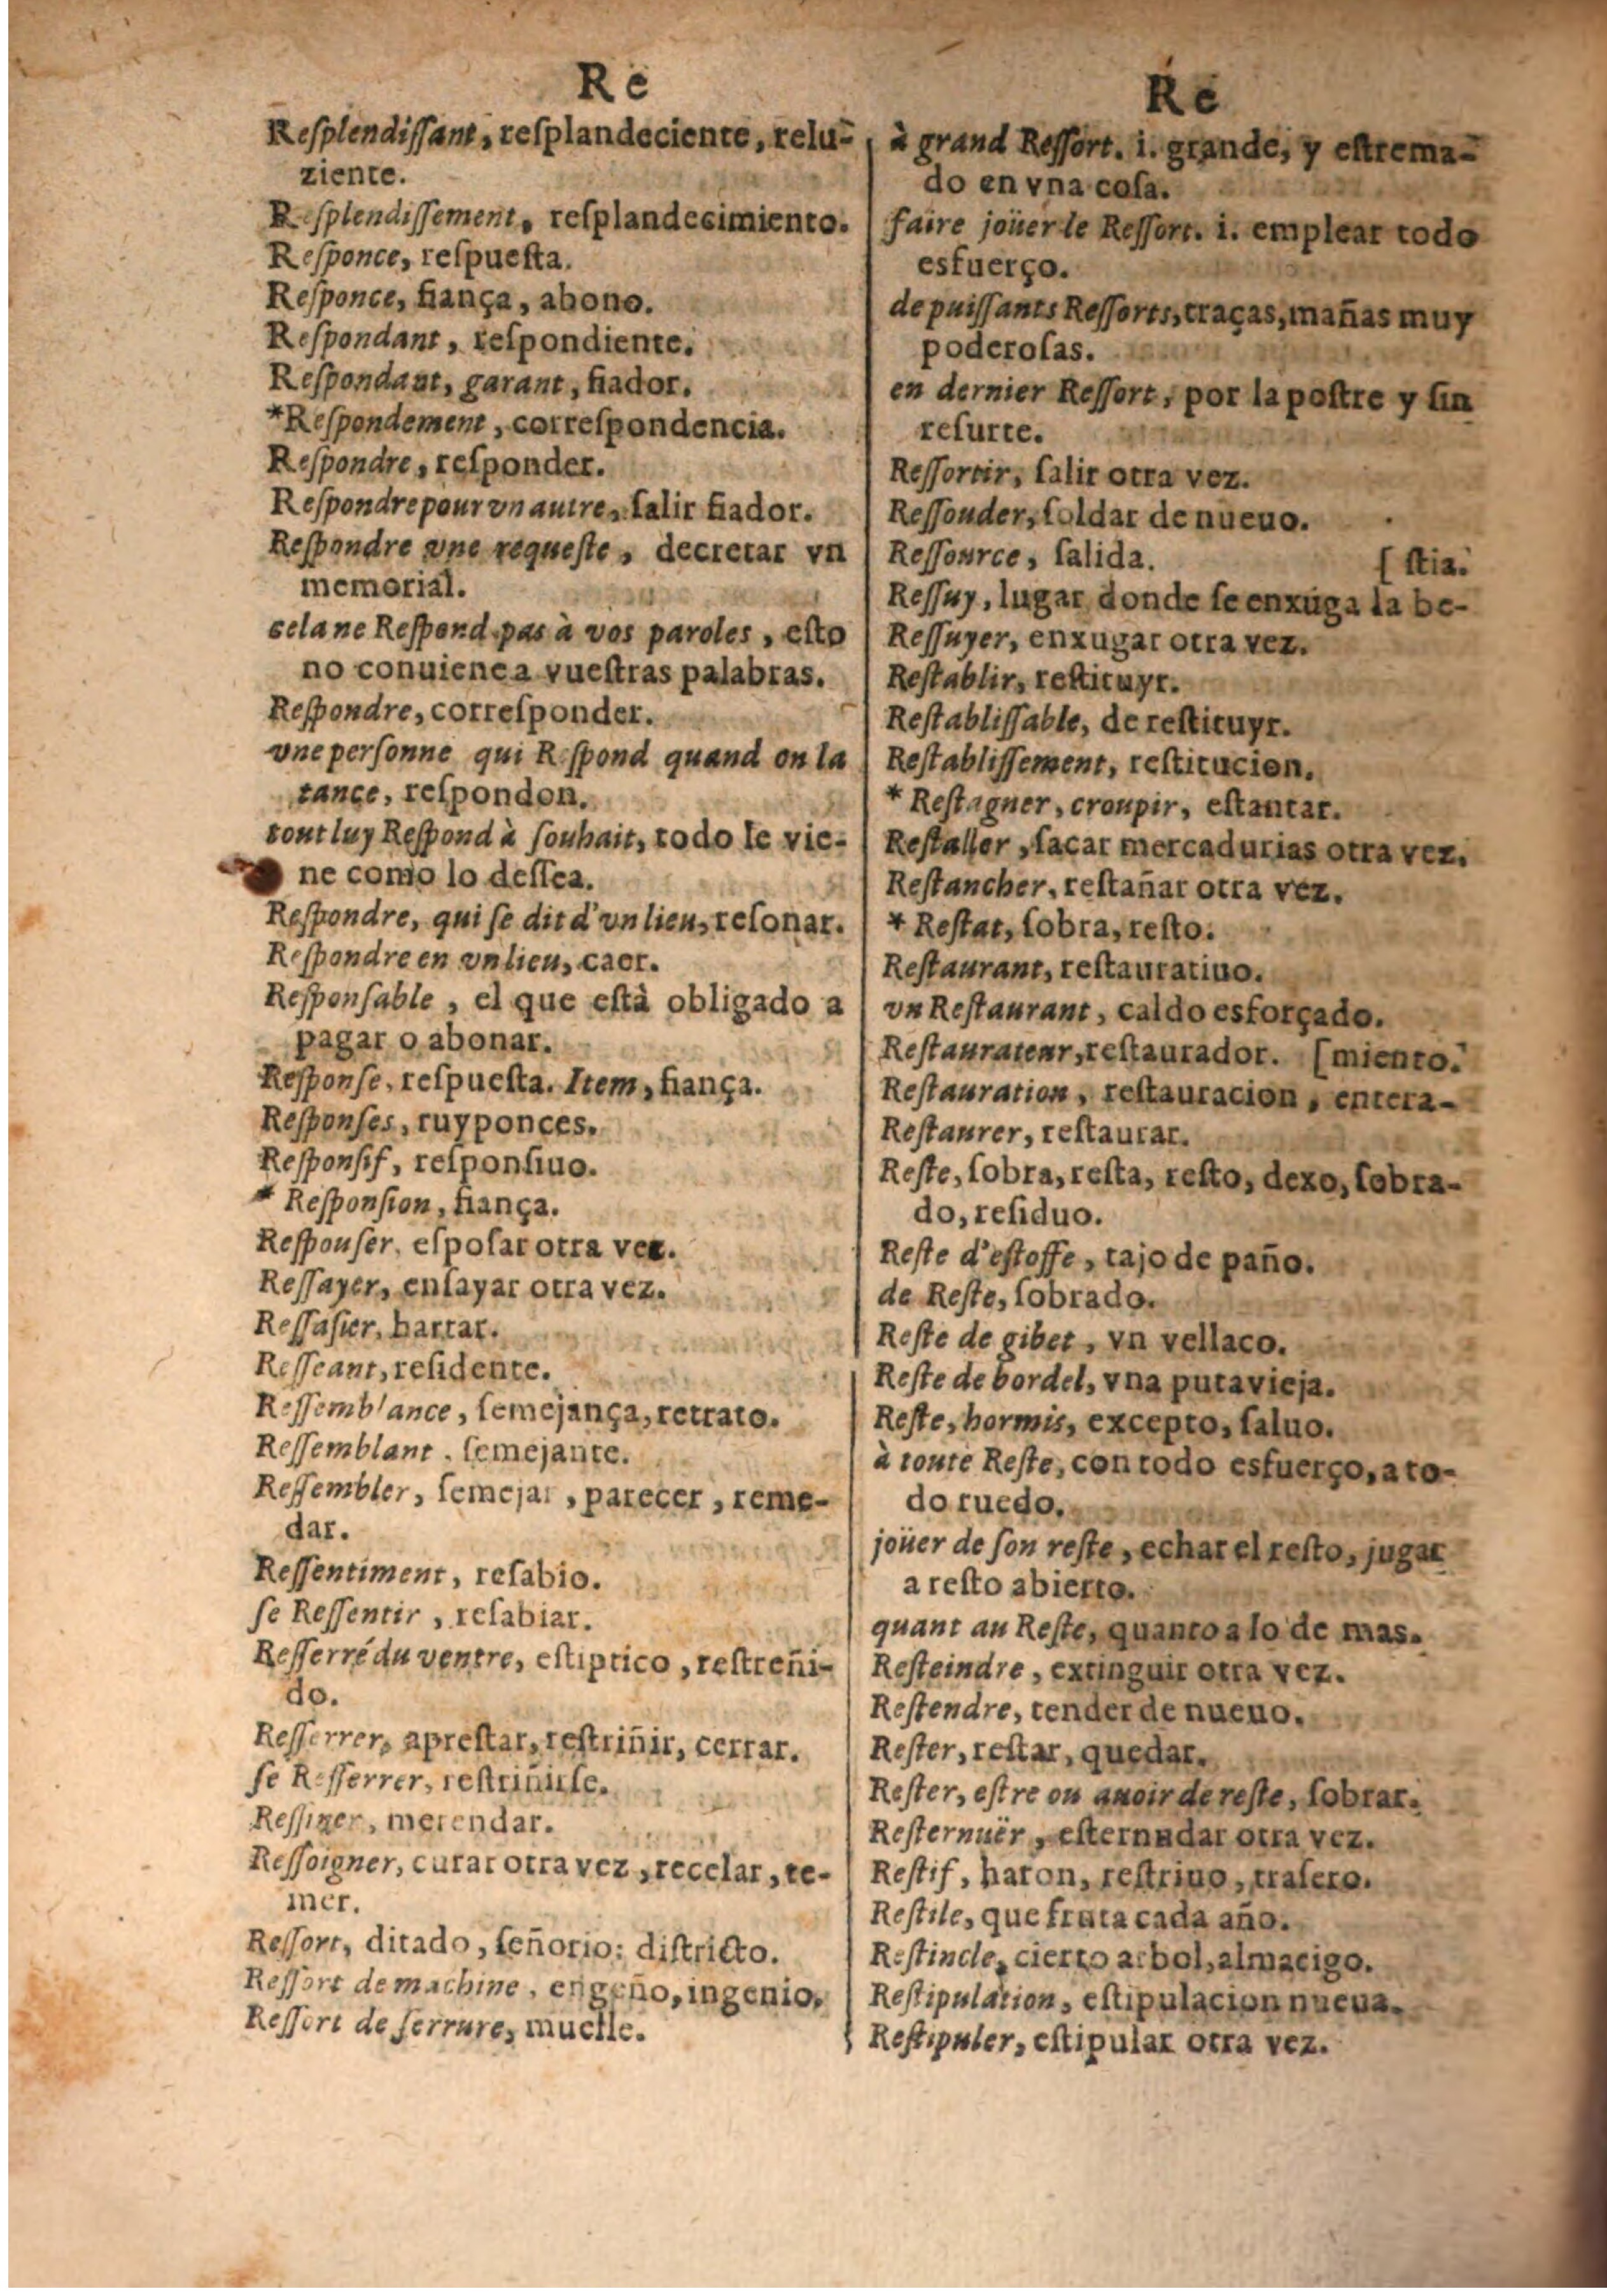 Re
Reſplendiſſant, reſplandeciente, relu-
ziente.
Reſplendiſſement, reſplandecimiento.
Reſponce, reſpueſta.
Reſponce, fiança, abono.
Reſpondant, reſpondiente.
Reſpondant, garant, fiador.
*Reſpondement, correſpondencia.
Reſpondre, reſponder.
Reſpondre pour vn autre, ſalir fiador.
Reſpondre vne requeſte, decretar vn
memorial.
cela ne Reſpond pas à vos paroles, eſto
no conuiene a vueſtras palabras.
Reſpondre, correſponder.
vne perſonne qui Reſpond quand on la
tance, reſpondon.
tout luy Reſpond à ſouhait, todo le vie-
ne como lo deſſea.
Reſpondre, qui ſe dit d'vn lieu, reſonar.
Reſpondre en vn lieu, caer.
Reſponſable, el que eſtà obligado a
pagar o abonar.
Reſponſe, reſpueſta. Item, fiança.
Reſponſes, ruyponces.
Reſponſif, reſponſiuo.
* Reſponſion, fiança.
Reſpouſer, eſpoſar otra vez.
Reſſayer, enſayar otra vez.
Reſſaſier, hartar.
Reſſeant, reſidente.
Reſſemblance, ſemejança, retrato.
Reſſemblant, ſemejante.
Reſſembler, ſemejar, parecer, reme-
dar.
Reſſentiment, reſabio.
ſe Reſſentir, reſabiar.
Reſſerré du ventre, eſtiptico, reſtreñi-
do.
Reſſerrer, apreſtar, reſtriñir, cerrar.
ſe Reſſerrer, reſtriñirſe.
Reſſiner, merendar.
Reſſoigner, curar otra vez, recelar, te-
mer.
Reſſort, ditado, ſeñorio: diſtricto.
Reſſort de machine, engeño, ingenio.
Reſſort de ſerrure, muelle.
Re
à grand Reſſort. i. grande, y eſtrema-
do en vna coſa.
faire joüer le Reſſort. i. emplear todo
esfuerço.
de puiſſants Reſſorts, traças, mañas muy
poderoſas.
en dernier Reſſort, por la poſtre y ſin
reſurte.
Reſſortir, ſalir otra vez.
Reſſouder, ſoldar de nueuo.
Reſſource, ſalida. [ ſtia.
Reſſuy, lugar donde ſe enxuga la be-
Reſſuyer, enxugar otra vez.
Reſtablir, reſtituyr.
Reſtabliſſable, de reſtituyr.
Reſtabliſſement, reſtitucion.
* Reſtagner, croupir, eſtantar.
Reſtaller, ſacar mercadurias otra vez.
Reſtancher, reſtañar otra vez.
* Reſtat, ſobra, reſto.
Reſtaurant, reſtauratiuo.
vn Reſtaurant, caldo esforçado.
Reſtaurateur, reſtaurador. [miento.
Reſtauration, reſtauracion, entera-
Reſtaurer, reſtaurar.
Reſte, ſobra, reſta, reſto, dexo, ſobra-
do, reſiduo.
Reſte d'eſtoffe, tajo de paño.
de Reſte, ſobrado.
Reſte de gibet, vn vellaco.
Reſte de bordel, vna puta vieja.
Reſte, hormis, excepto, ſaluo.
à toute Reſte, con todo esfuerço, a to-
do ruedo.
joüer de ſon reſte, echar el reſto, jugar
a reſto abierto.
quant au Reſte, quanto a lo de mas.
Reſteindre, extinguir otra vez.
Reſtendre, tender de nueuo.
Reſter, reſtar, quedar.
Reſter, eſtre ou auoir de reſte, ſobrar.
Reſternuër, eſternudar otra vez.
Reſtif, haron, reſtriuo, traſero.
Reſtile, que fruta cada año.
Reſtincle, cierto arbol, almacigo.
Reſtipulation, eſtipulacion nueua.
Reſtipuler, eſtipular otra vez.